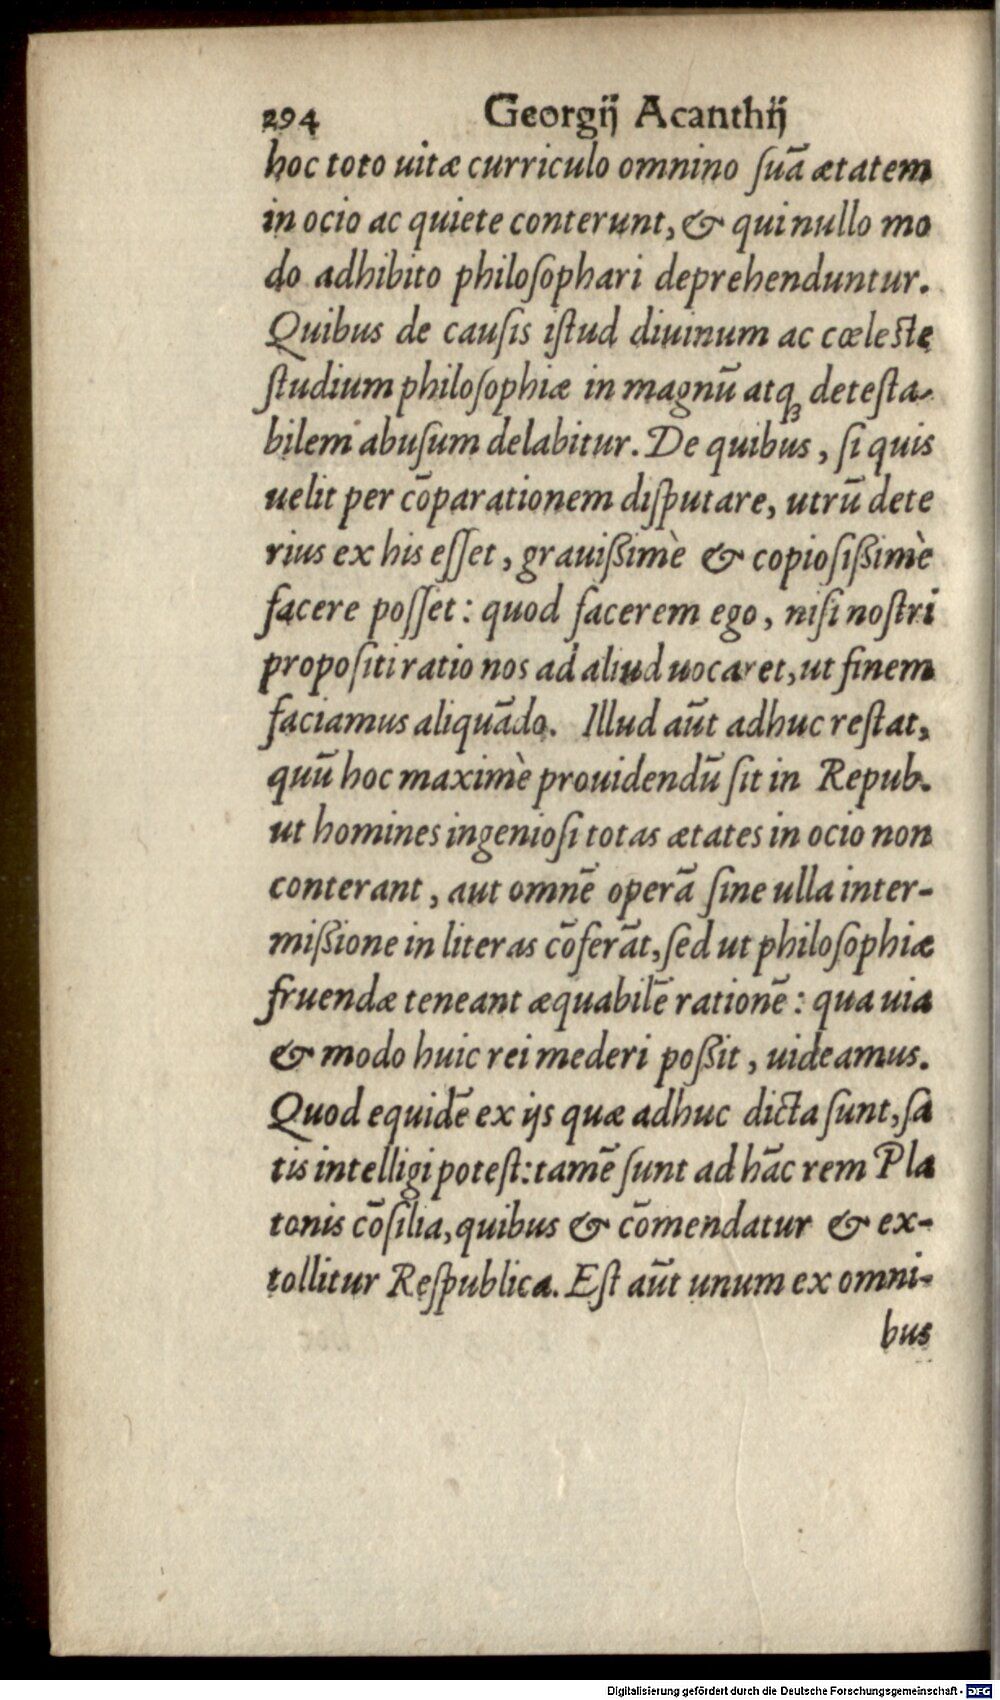 294 Georgij Acanthij
hoc toto uitæ curriculo omnino ſuā ætatem
in ocio ac quiete conterunt, & qui nullo mo
do adhibito philoſophari deprehenduntur.
Quibus de cauſis iſtud diuinum ac cœleſte
ſtudium philoſophiæ in magnū atqꝫ deteſta-
bilem abuſum delabitur. De quibus, ſi quis
uelit per cōparationem diſputare, utrū dete
rius ex his eſſet, grauißimè & copioſißimè
facere poſſet: quod facerem ego, niſi noſtri
propoſiti ratio nos ad aliud uocaret, ut finem
faciamus aliquādo. Illud aūt adhuc reſtat,
quū hoc maximè prouidendū ſit in Repub.
ut homines ingenioſi totas ætates in ocio non
conterant, aut omnē operā ſine ulla inter-
mißione in literas cōferāt, ſed ut philoſophiæ
fruendæ teneant æquabilē rationē: qua uia
& modo huic rei mederi poßit, uideamus.
Quod equidē ex ijs quæ adhuc dicta ſunt, ſa
tis intelligi poteſt: tamē ſunt ad hāc rem Pla
tonis cōſilia, quibus & cōmendatur & ex-
tollitur Reſpublica. Eſt aūt unum ex omni-
bus
Digitalisierung gefördert durch die Deutsche Forschungsgemeinschaft - DFG